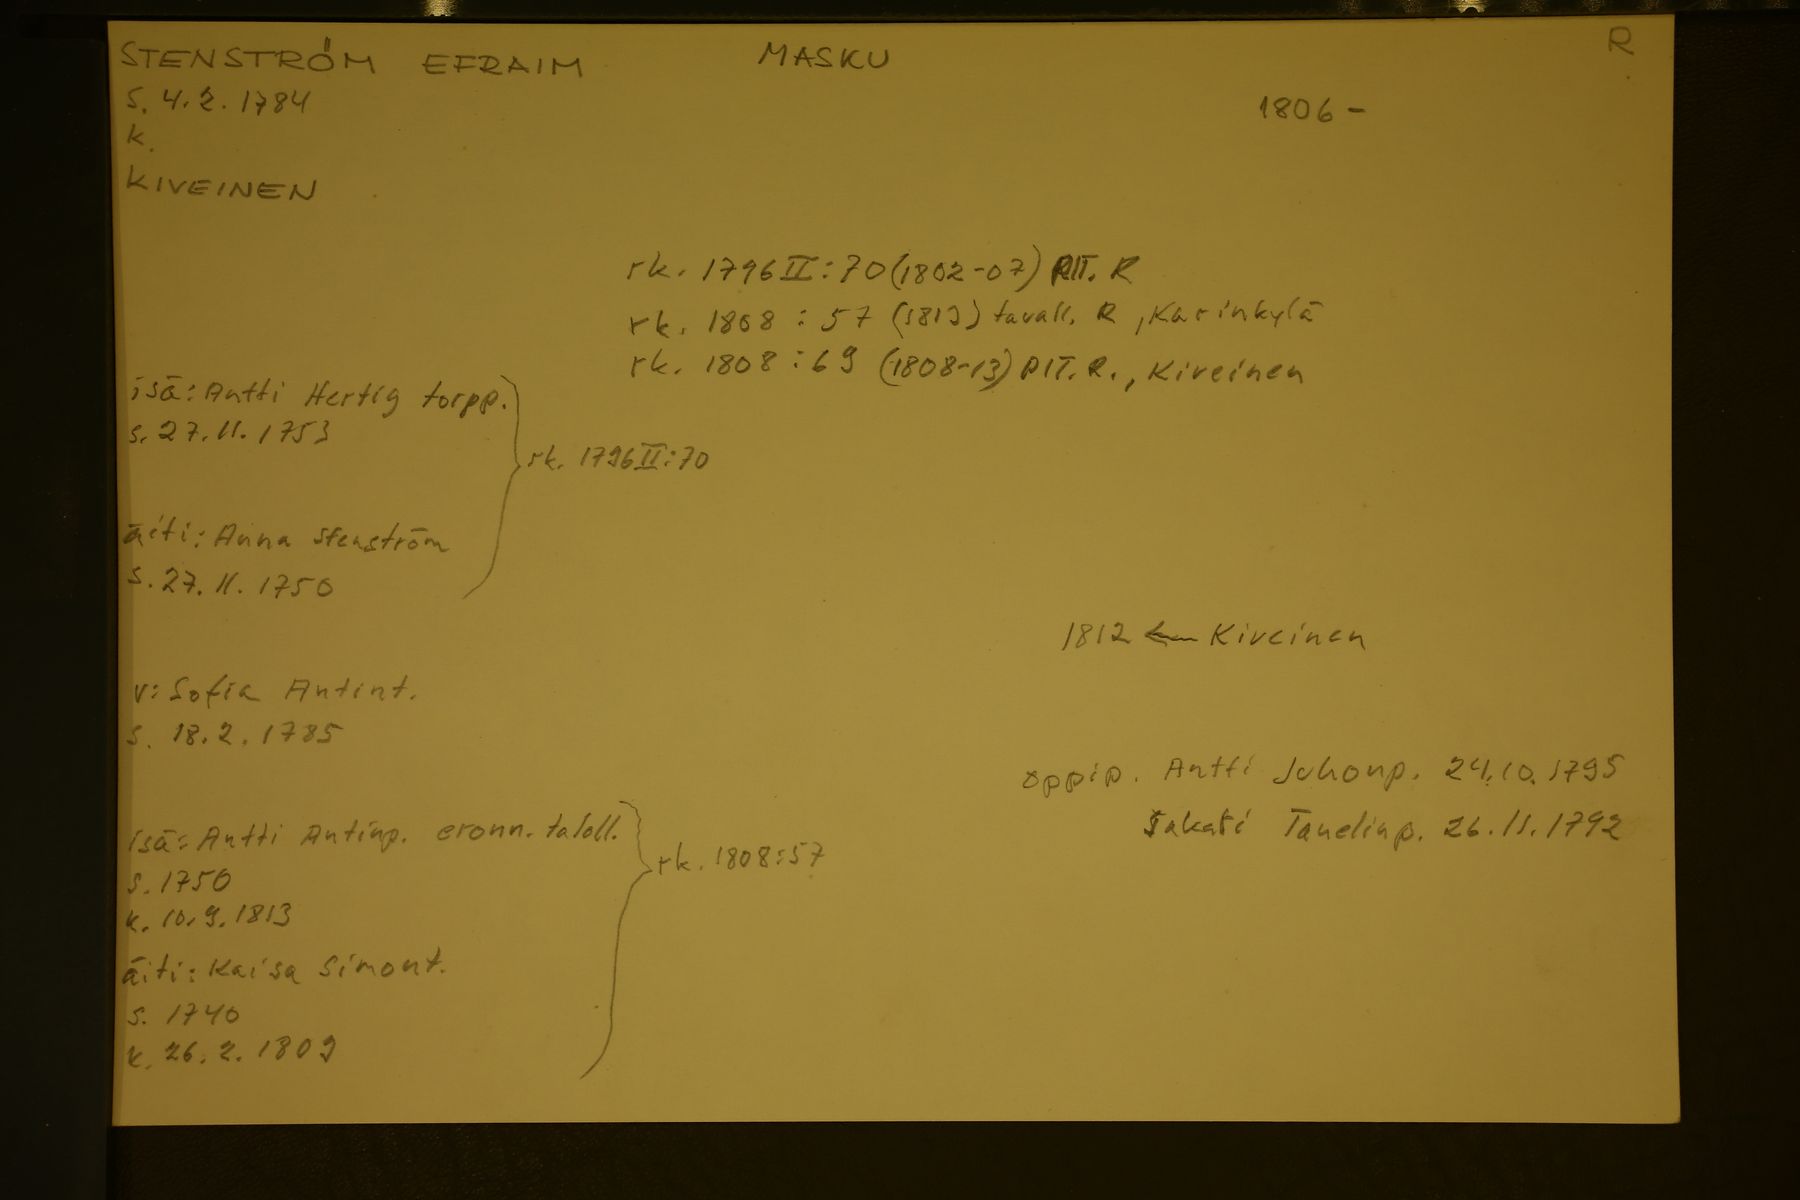 STENSTRÖM EFRAIM MASKU R
s. 4.2. 1784
1806 -
k.
KIVEINEN
rk. 1796 II: 70 (1802-07) PIT. R
rk. 1808 : 57 (1813) tavall. R, Karinkylä
rk. 1808 : 69 (1808-13) PIT. R., Kiveinen
isä: Antti Hertig torpp.
s. 27.11. 1753
rk. 1796 II: 70
äiti: Anna Stenström
s. 27.11. 1750
1812 ← Kiveinen
v: Sofia Antint.
s. 18.2. 1785
oppip. Antti Juhonp. 24.10.1795
Tanelinp. 26.11.1792
isä: Antti Antinp. eronn. taloll.
rk. 1808:57
s. 1750
k. 10.9.1813
äiti: Kaisa Simont.
s. 1740
k. 26.2. 1809